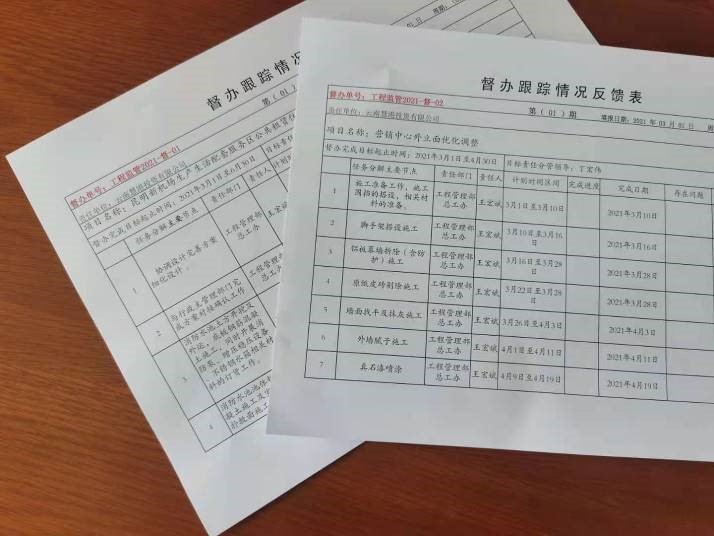 督办跟踪情况
第（01）
督办单号：工程监管2021-督-01
责任单位：云南慧港投资有限公司
项目名称：昆明新机场生产生活配套服务区公共租赁住
督办完成目标起止时间：2021年3月1日至6月30日
任务分解主要节点
责任部门
1
协调设计完善方案
细化设计。
工程管理部
总工办
2
与行政主管理部门完
成方案对接确认工作
工程管理部
总工办
3
消防水池土方开挖及
外运，底板钢筋混凝
土施工，同时开展消
防泵、增压稳压设备
、不锈钢水箱相关材
料的订货工作。
工程管理部
总工办
4
消防水池池体
凝土施工及
督办跟踪情况反馈表
督办单号：工程监管2021-督-02
第（01）期
填报日期：2021 年 03 月 01 日
责任单位：云南慧港投资有限公司
项目名称：营销中心外立面优化调整
督办完成目标起止时间：2021年3月1日至4月30日
目标责任分管领导：丁宏伟
任务分解主要节点 责任部门 责任人 计划时间区间 完成进度 完成日期 存在问题
1 施工准备工作，施工
围挡的搭设，相关材
料的准备。
工程管理部
总工办
王宏斌 3月1日至3月10日 2021年3月10日
2 脚手架搭设施工
工程管理部
总工办
王宏斌
3月10日至3月16
日
2021年3月16日
3 铝板幕墙拆除（含防
护）施工
工程管理部
总工办
王宏斌
3月16日至3月28
日
2021年3月28日
4 原饰皮砖剔除施工
工程管理部
总工办
王宏斌
3月22日至3月28
日
2021年3月28日
5 墙面找平及抹灰施工
工程管理部
总工办
王宏斌 3月26日至4月3日 2021年4月3日
6 外墙腻子施工
工程管理部
总工办
王宏斌 4月1日至4月11日 2021年4月11日
7 真石漆喷涂
工程管理部
总工办
王宏斌 4月9日至4月19日 2021年4月19日